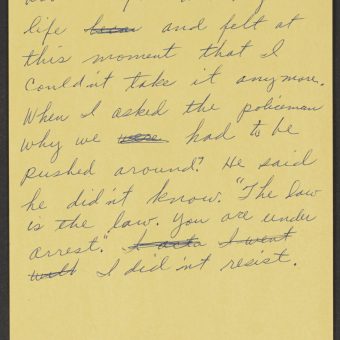 life becau and felt at
this moment that I
couldn't take it anymore.
When I asked the policeman
why we were had to be
pushed around? He said
he didn't know. "The law
is the law. You are under
arrest." I acts I went
with I did'nt resist.